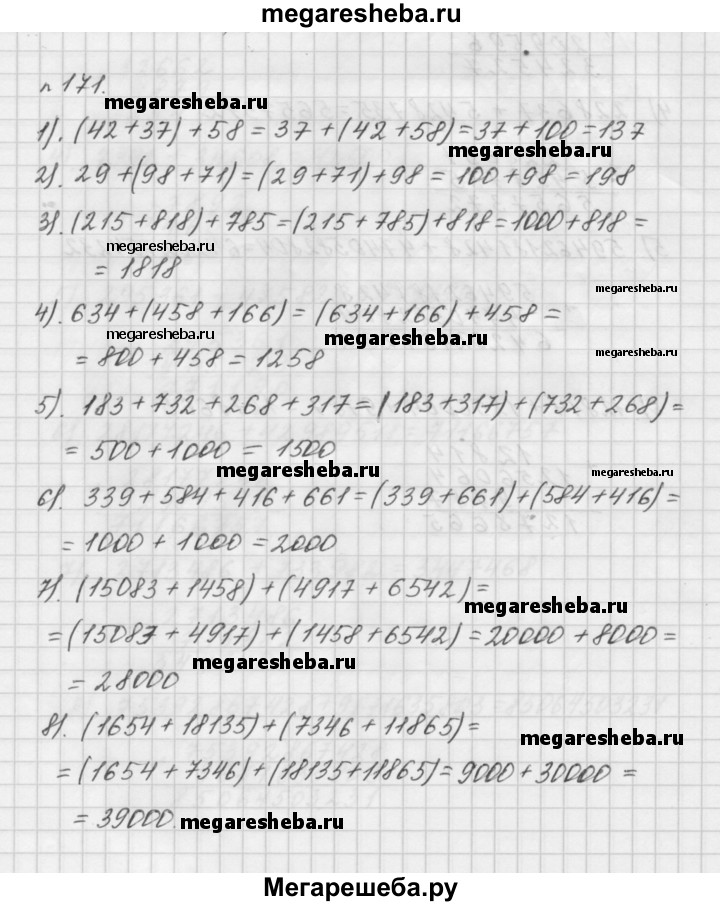 megaresheba.ru
n 171.
megaresheba.ru
1). (42+37)+58 = 37+(42+58)=37+100=137
megaresheba.ru
2). 29+(98+71)=(29+71)+98 = 100+98 = 198
3). (215+818)+785=(215+785)+818=1000+818 =
megaresheba.ru
= 1818
megaresheba.ru
4). 634+(458+166) = (634+166)+458=
megaresheba.ru
megaresheba.ru
= 800 + 458 = 1258
megaresheba.ru
5). 183+732+268+317=(183+317)+(732+268)=
= 500+1000 = 1500
megaresheba.ru
megaresheba.ru
6). 339+584+416+661=(339+661)+(584+416)=
= 1000 + 1000 = 2000
7). (15083+1458)+(4917+6542)=
megaresheba.ru
=(15083+4917)+(1458+6542)=20000+8000=
megaresheba.ru
= 28000
8). (1654+18135)+(7346+11865)=
megaresheba.ru
=(1654+7346)+(18135+11865)=9000+30000 =
= 39000
megaresheba.ru
Мегарешеба.ру